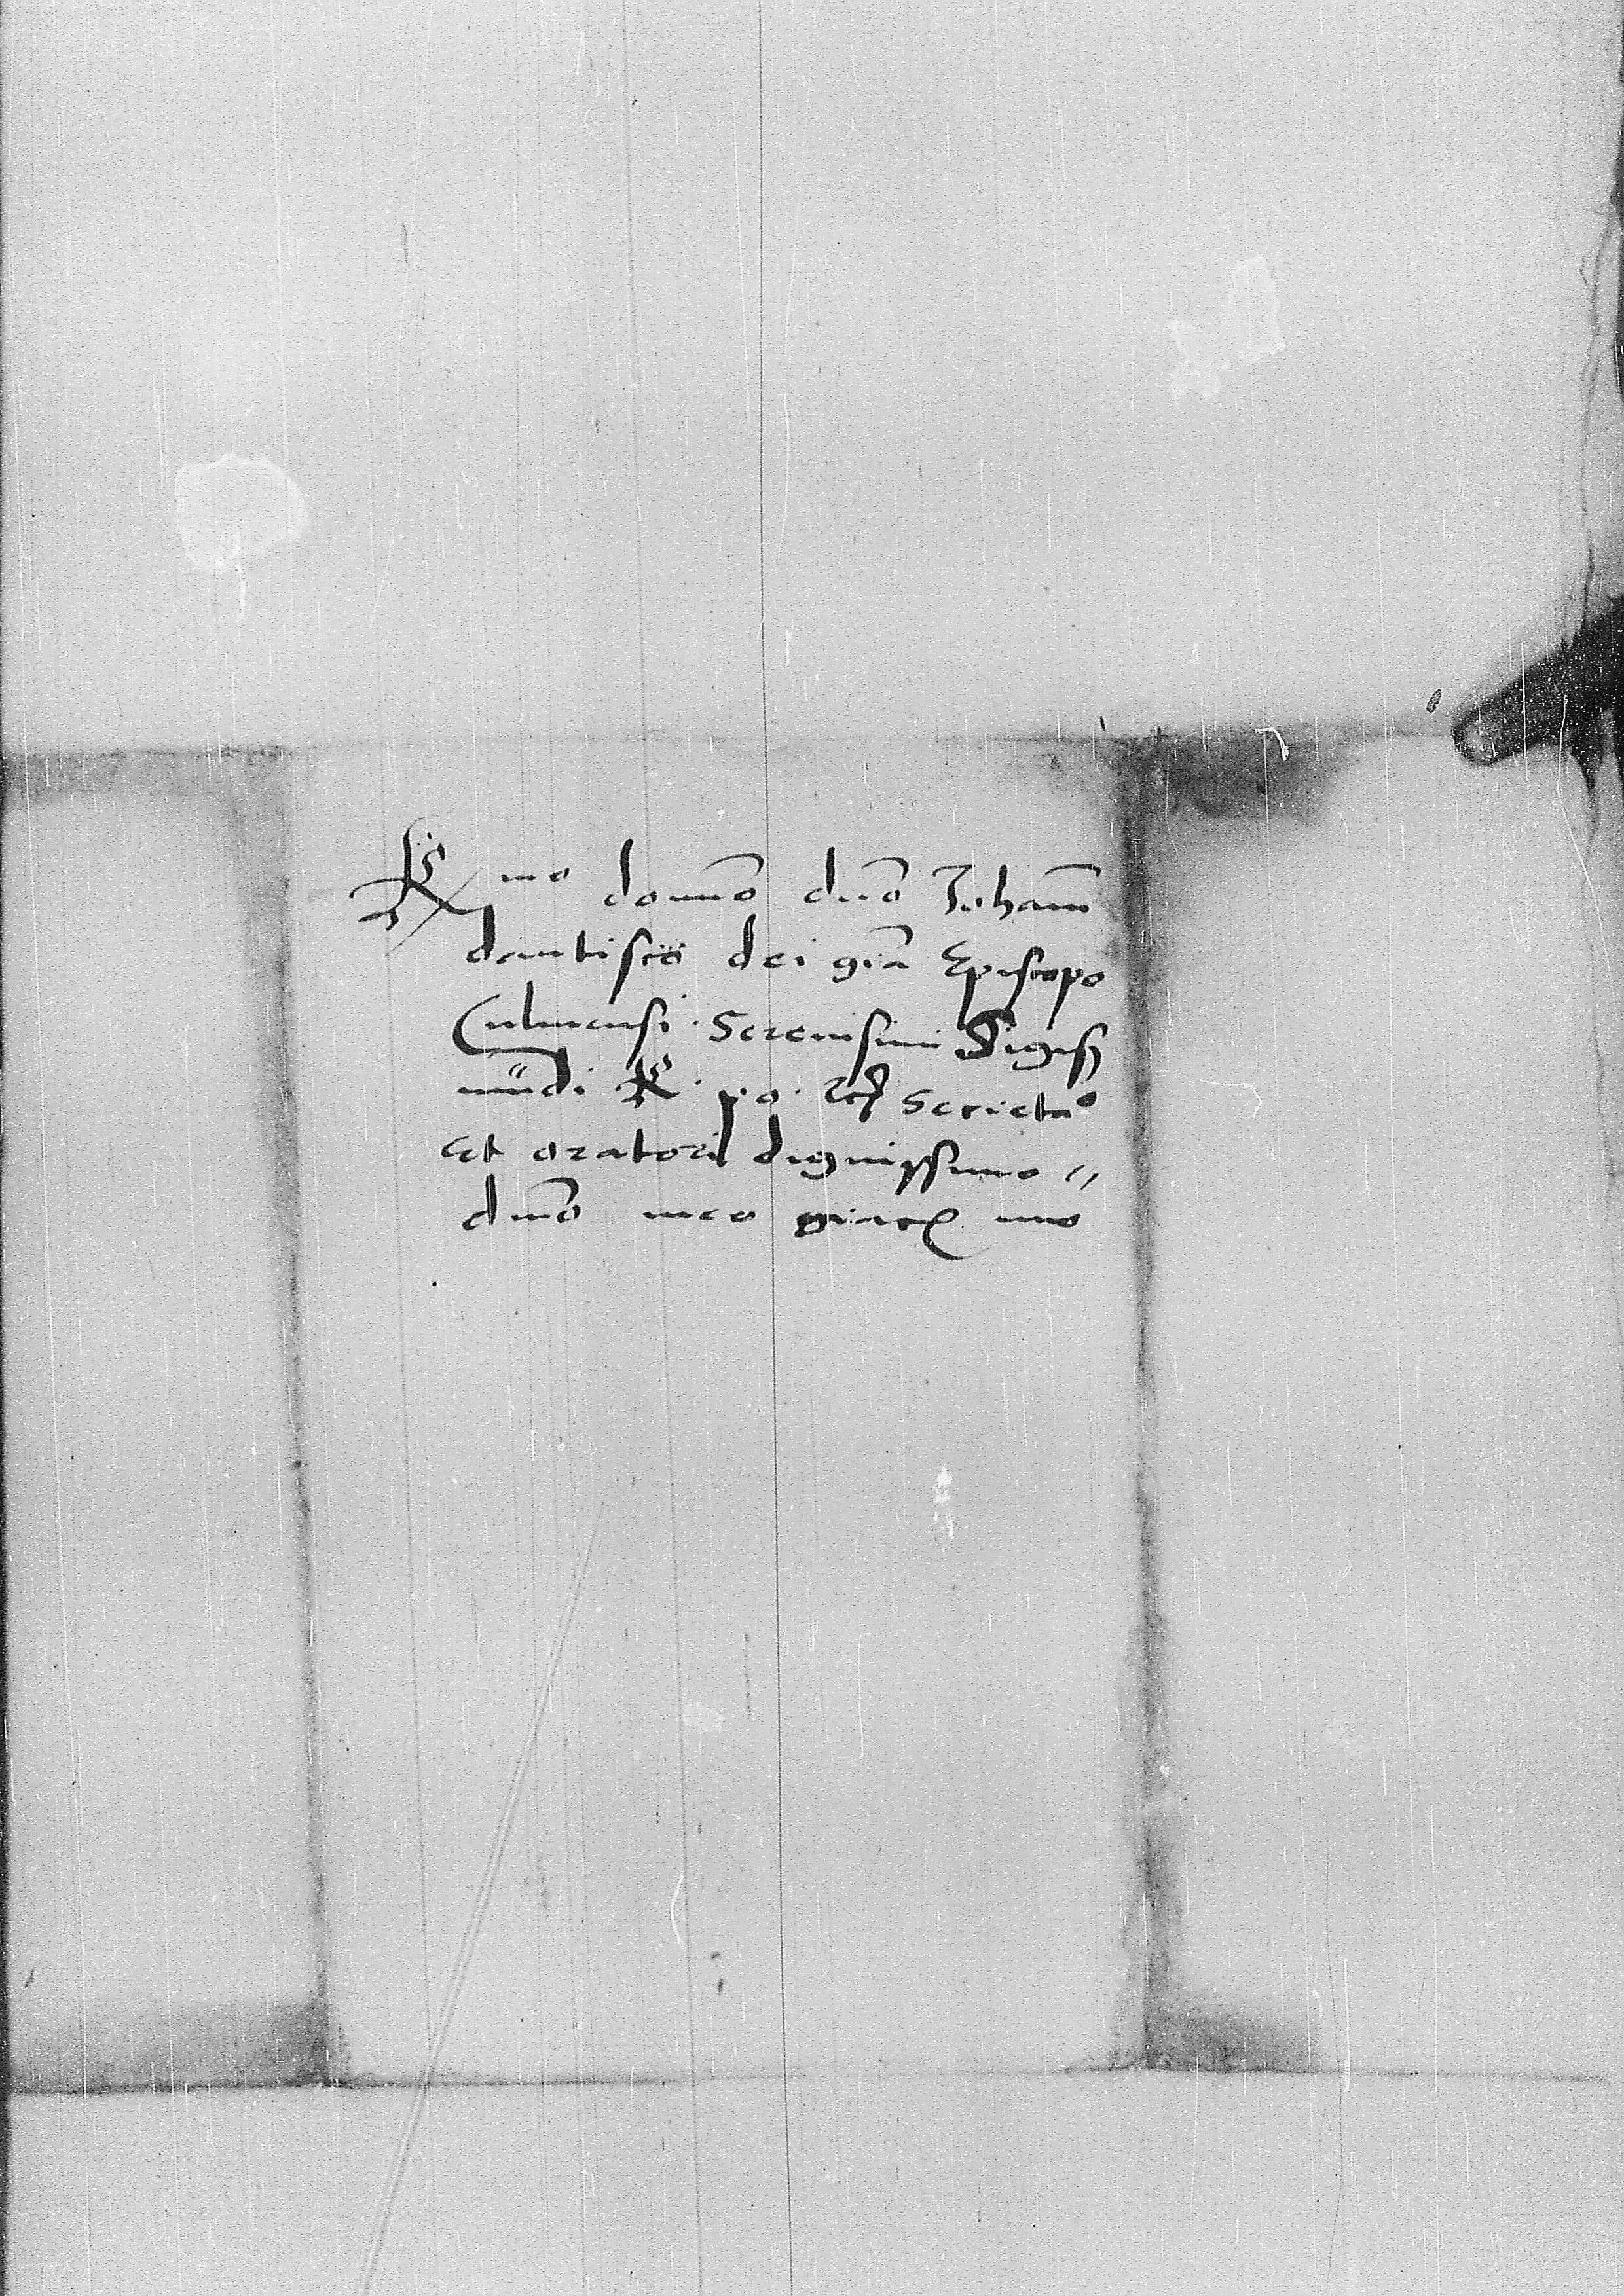 R mo domno dno Johann
dantisco dei gra Episcopo
Culmensi. Serenisimi Sigis
mundi R. po. etc Secreta o
Et oratori dignissimo "
dno meo grac mo